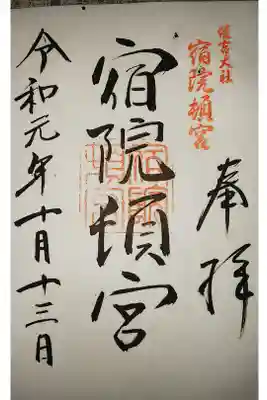 奉拝
住吉大社
宿院頓宮
宿院頓宮
令和元年十月十三日